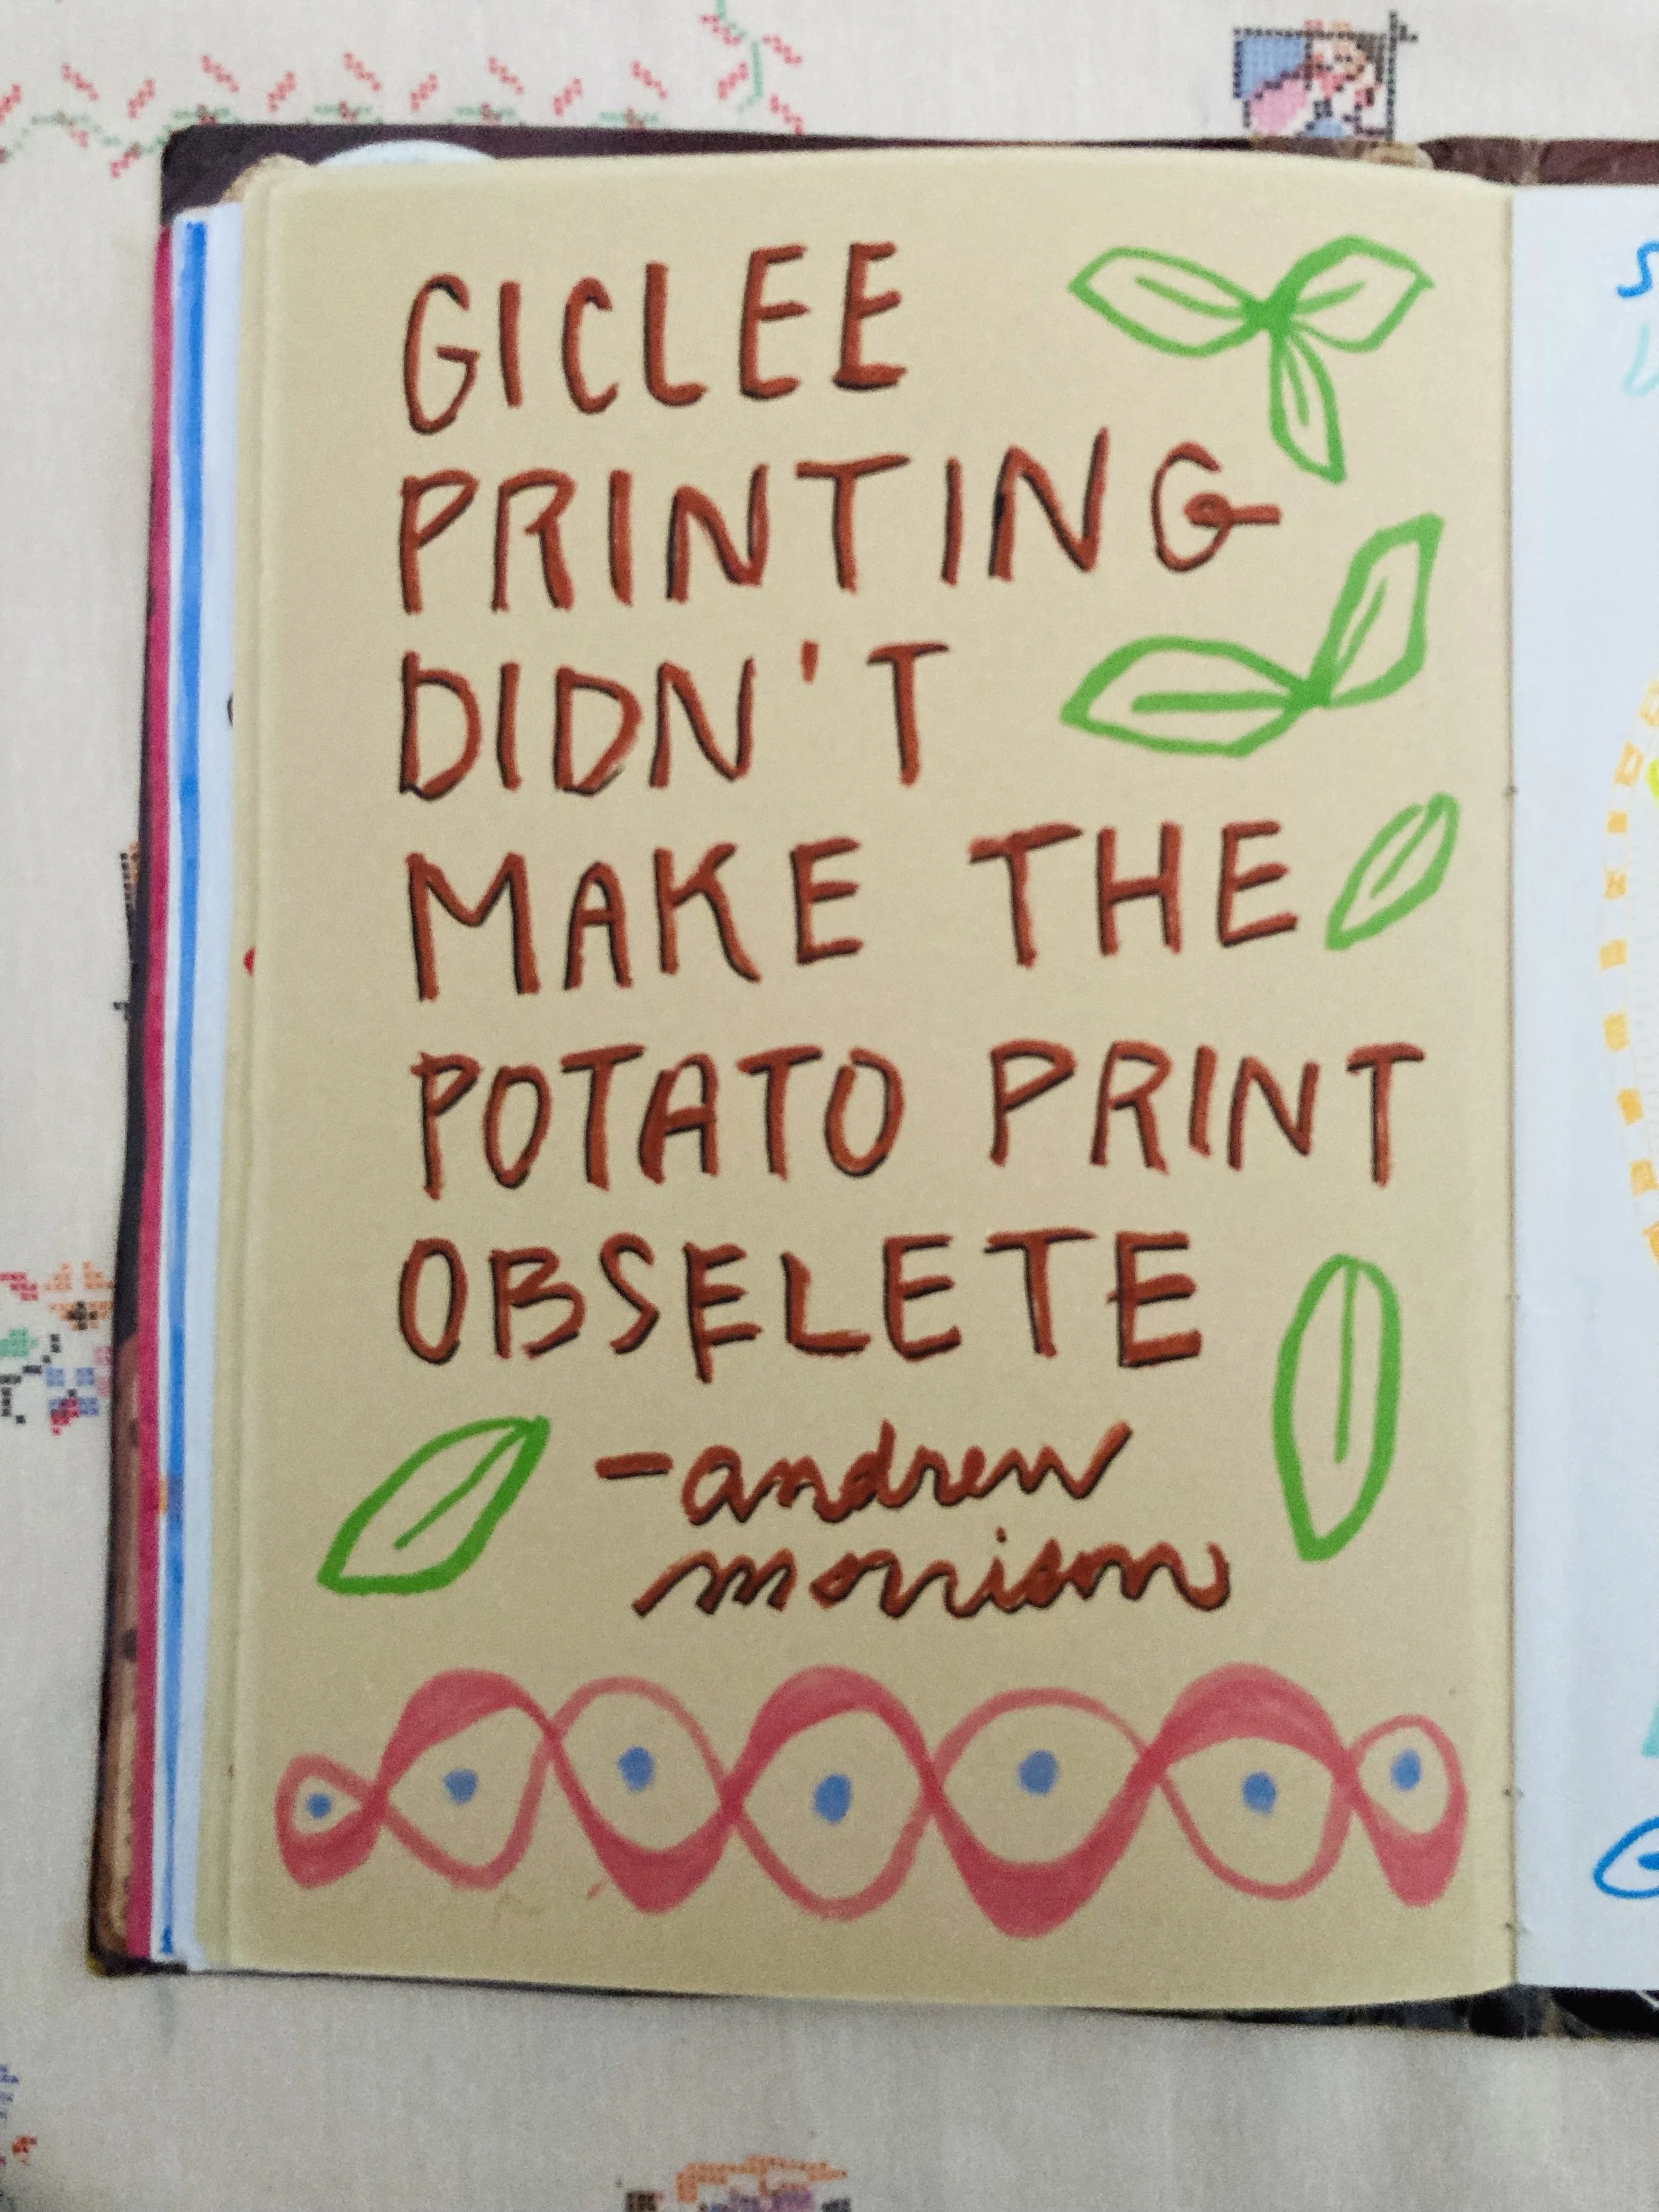 GICLEE
PRINTING
DIDN'T
MAKE THE
POTATO PRINT
OBSELETE
-andrew
morrison